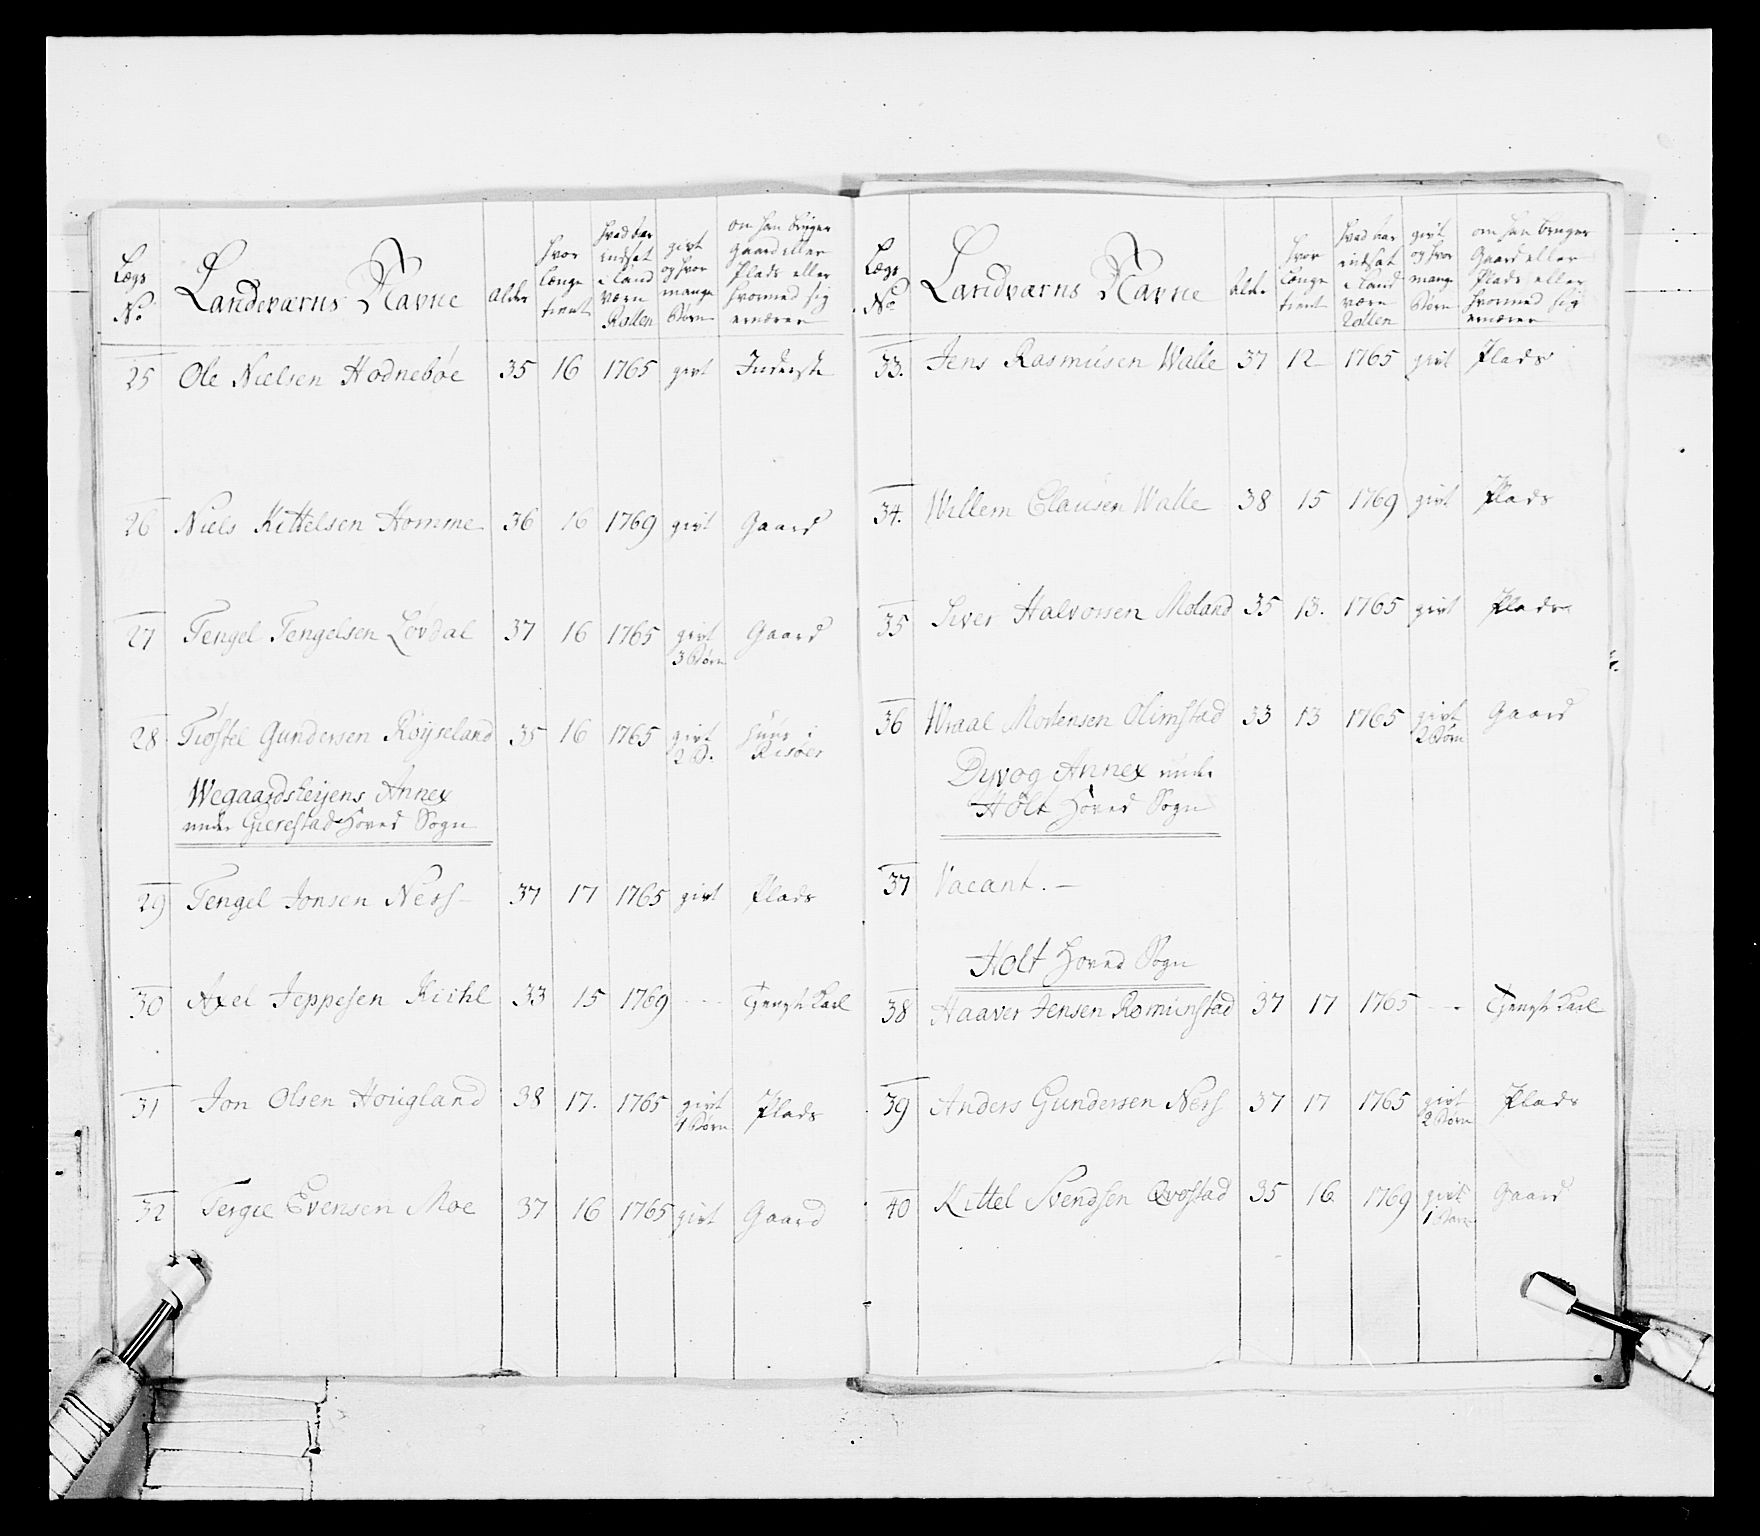 Lægs No. | Landeværns Navne | alder | hvor længe tient | hvad aar indsat i Land værn Rollen | givt og hvor mange Børn | om han bruger Gaard eller Plads eller hvormed sig ernærer
25 Ole Nielsen Hodnebøe 35 16 1765 givt Inderste
26 Niels Kittelsen Homme 36 16 1769 givt Gaard
27 Tengel Tengelsen Løvdal 37 16 1765 givt 3 Børn Gaard
28 Tiøstel Gundersen Røÿseland 35 16 1765 givt 2 B. Huus i Risøer
Wegaardsheÿens Annex
under Gierestad Hoved Sogn
29 Tengel Jonsen Ness 37 17 1765 givt Plads
30 Axel Jeppesen Kiihl 33 15 1769 --- Tieneste Karl
31 Jon Olsen Hougland 38 17. 1765 givt 4 Børn Plads
32 Tergie Evensen Moe 37 16 1765 givt Gaard
Lægs No | Landværns Navne | alder | hvor længe tient | hvad aar indsat i Land værn Rollen | givt og hvor mange Børn | om han bruger Gaard eller Plads eller hvormed sig ernærer
33. Jens Rasmusen Walle 37 12 1765 givt Plads
34. Willem Clausen Walle 38 15 1769 givt Plads
35 Siver Halvorsen Moland 35 13. 1765 givt Plads
36 Wraal Mortensen Olimstad 33 13 1765 givt 2 Børn Gaard
Dyvog Annex under
Holt Hoved Sogn
37 Vacant. —
Holt Hoved Sogn
38 Haaver Jensen Romunstad 37 17 1765 --- Tieneste Karl
39 Anders Gundersen Ness 37 17 1765 givt 2 Børn Plads
40 Kittel Svendsen Qvostad 35 16 1769 givt 1 Barn Gaard